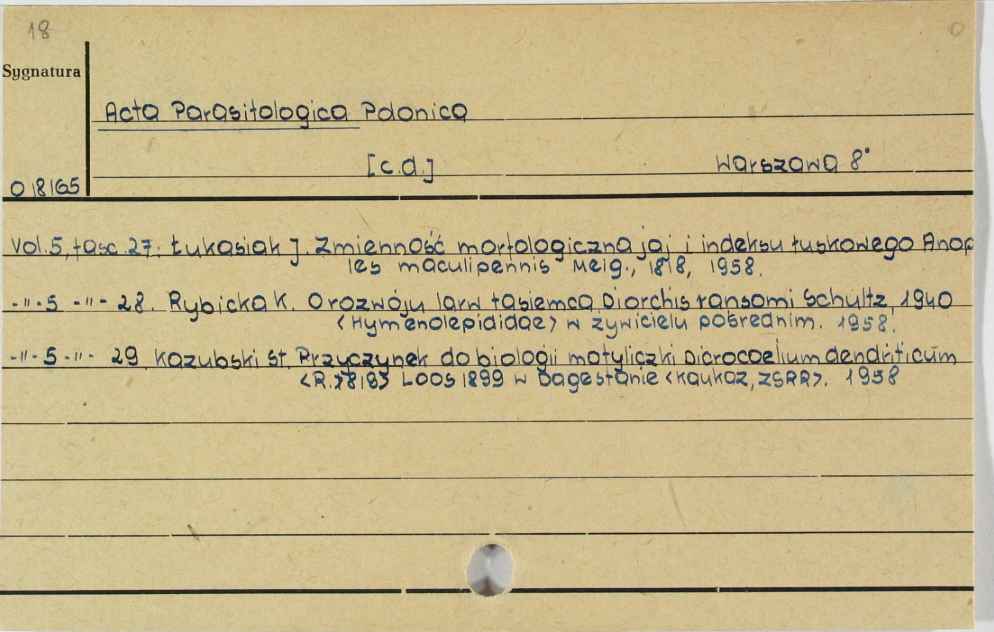 18
0
Sygnatura
Acta Parasitologica Polonica
[c.d.] Warszawa 8°
O 8165
Vol. 5, fasc. 27. Łukasiak J. Zmienność morfologiczna jaj i indeksu łuskowego Anop
les maculipennis Meig., 1818, 1958.
-"- 5 -"- 28. Rybicka K. O rozwoju larw tasiemca Diorchis ransomi Schultz, 1940
<Hymenolepididae> w żywicielu pośrednim. 1958.
-"- 5 -"- 29 Kazubski St. Przyczynek do biologii motyliczki Dicrocoelium dendriticum
<R. 1819> Looss 1899 w Dagestanie <Kaukaz, ZSRR>. 1958